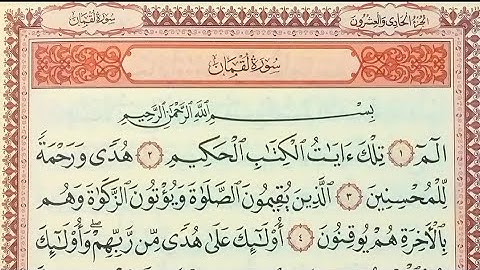 الجزء الحادى والعشرون
سورة لقمان
سُورَةُ لُقْمَان
بِسْمِ اللَّهِ الرَّحْمَٰنِ الرَّحِيمِ
الٓمٓ ١ تِلْكَ ءَايَاتُ الْكِتَابِ الْحَكِيمِ ٢ هُدًى وَرَحْمَةً
لِّلْمُحْسِنِينَ ٣ الَّذِينَ يُقِيمُونَ الصَّلَوٰةَ وَيُؤْتُونَ الزَّكَوٰةَ وَهُم
بِالْأَخِرَةِ هُمْ يُوقِنُونَ ٤ أُوْلَٰٓئِكَ عَلَىٰ هُدًى مِّن رَّبِّهِمْ ۖ وَأُوْلَٰٓئِكَ